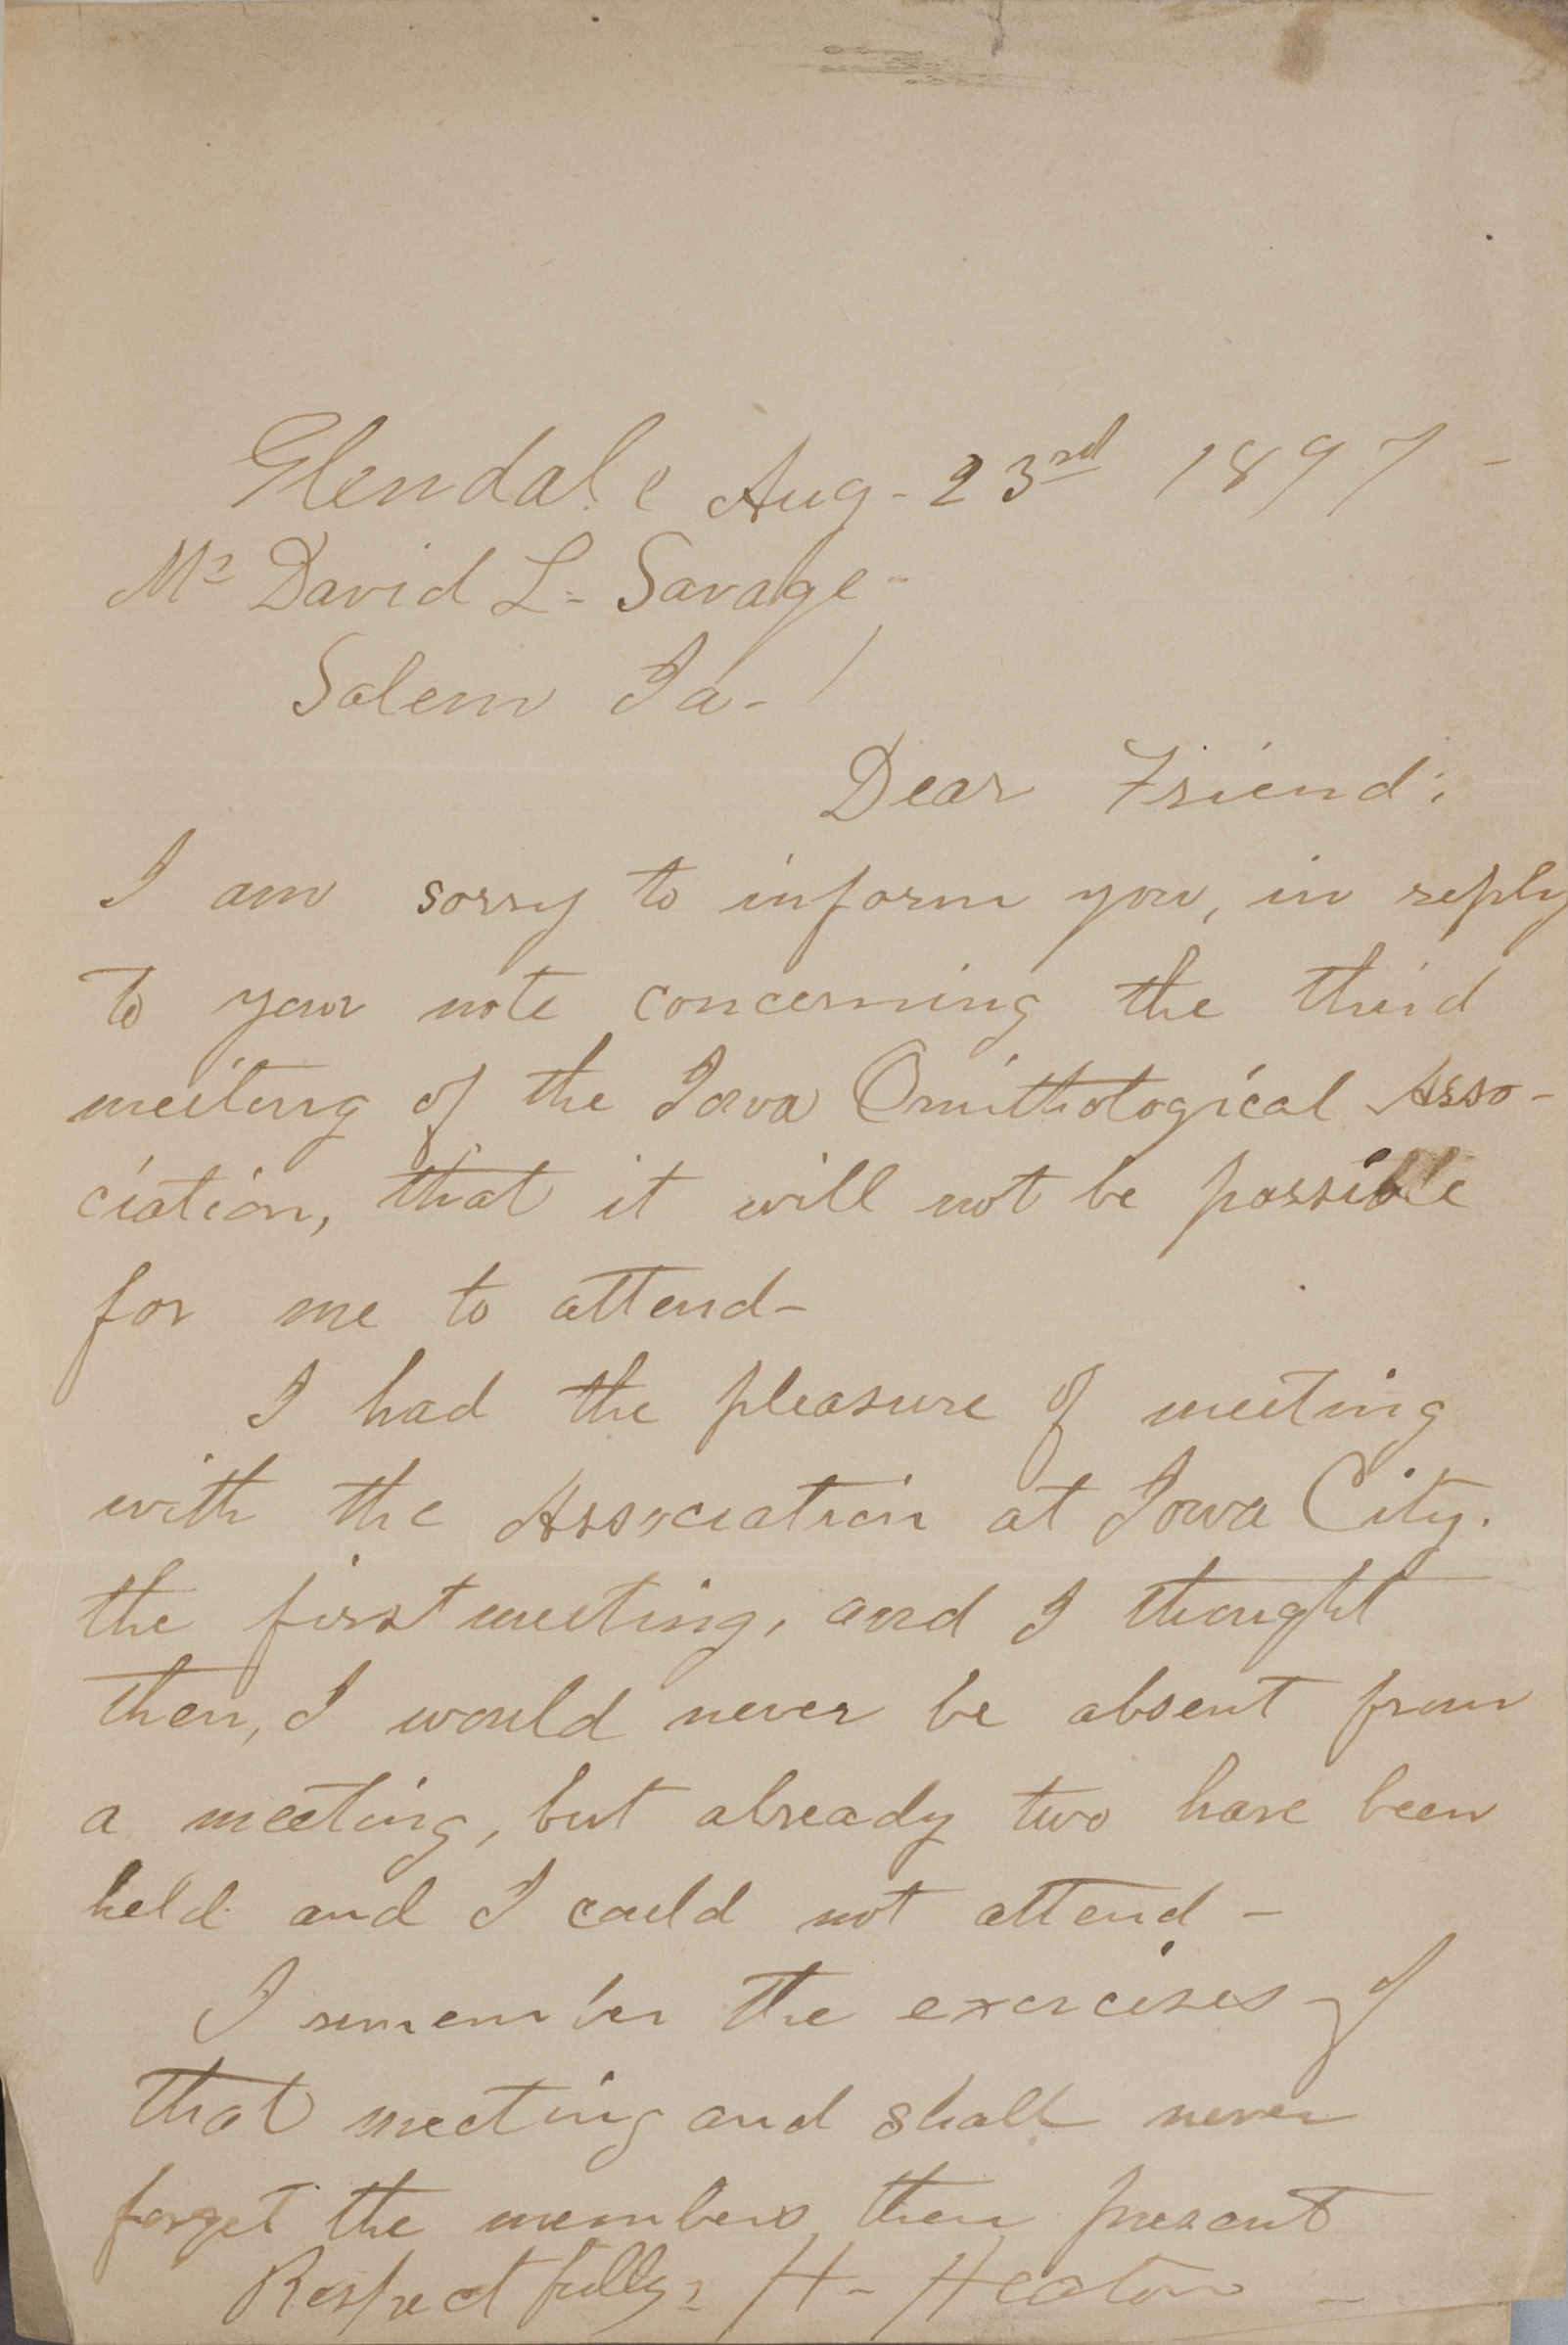 Glendale Aug - 23rd 1897 -
Mr David L - Savage -
Salem Ia - /
Dear Friend :
I am sorry to inform you, in reply
to your note concerning the third
meeting of the Iowa Ornithological Asso-
ciation, that it will not be possible
for me to attend -
I had the pleasure of meeting
with the Association at Iowa City.
the first meeting, and I thought
then, I would never be absent from
a meeting, but already two have been
held and I could not attend -
I remember the exercises of
that meeting and shall never
forget the members then present
Respectfully, H - Heaton -